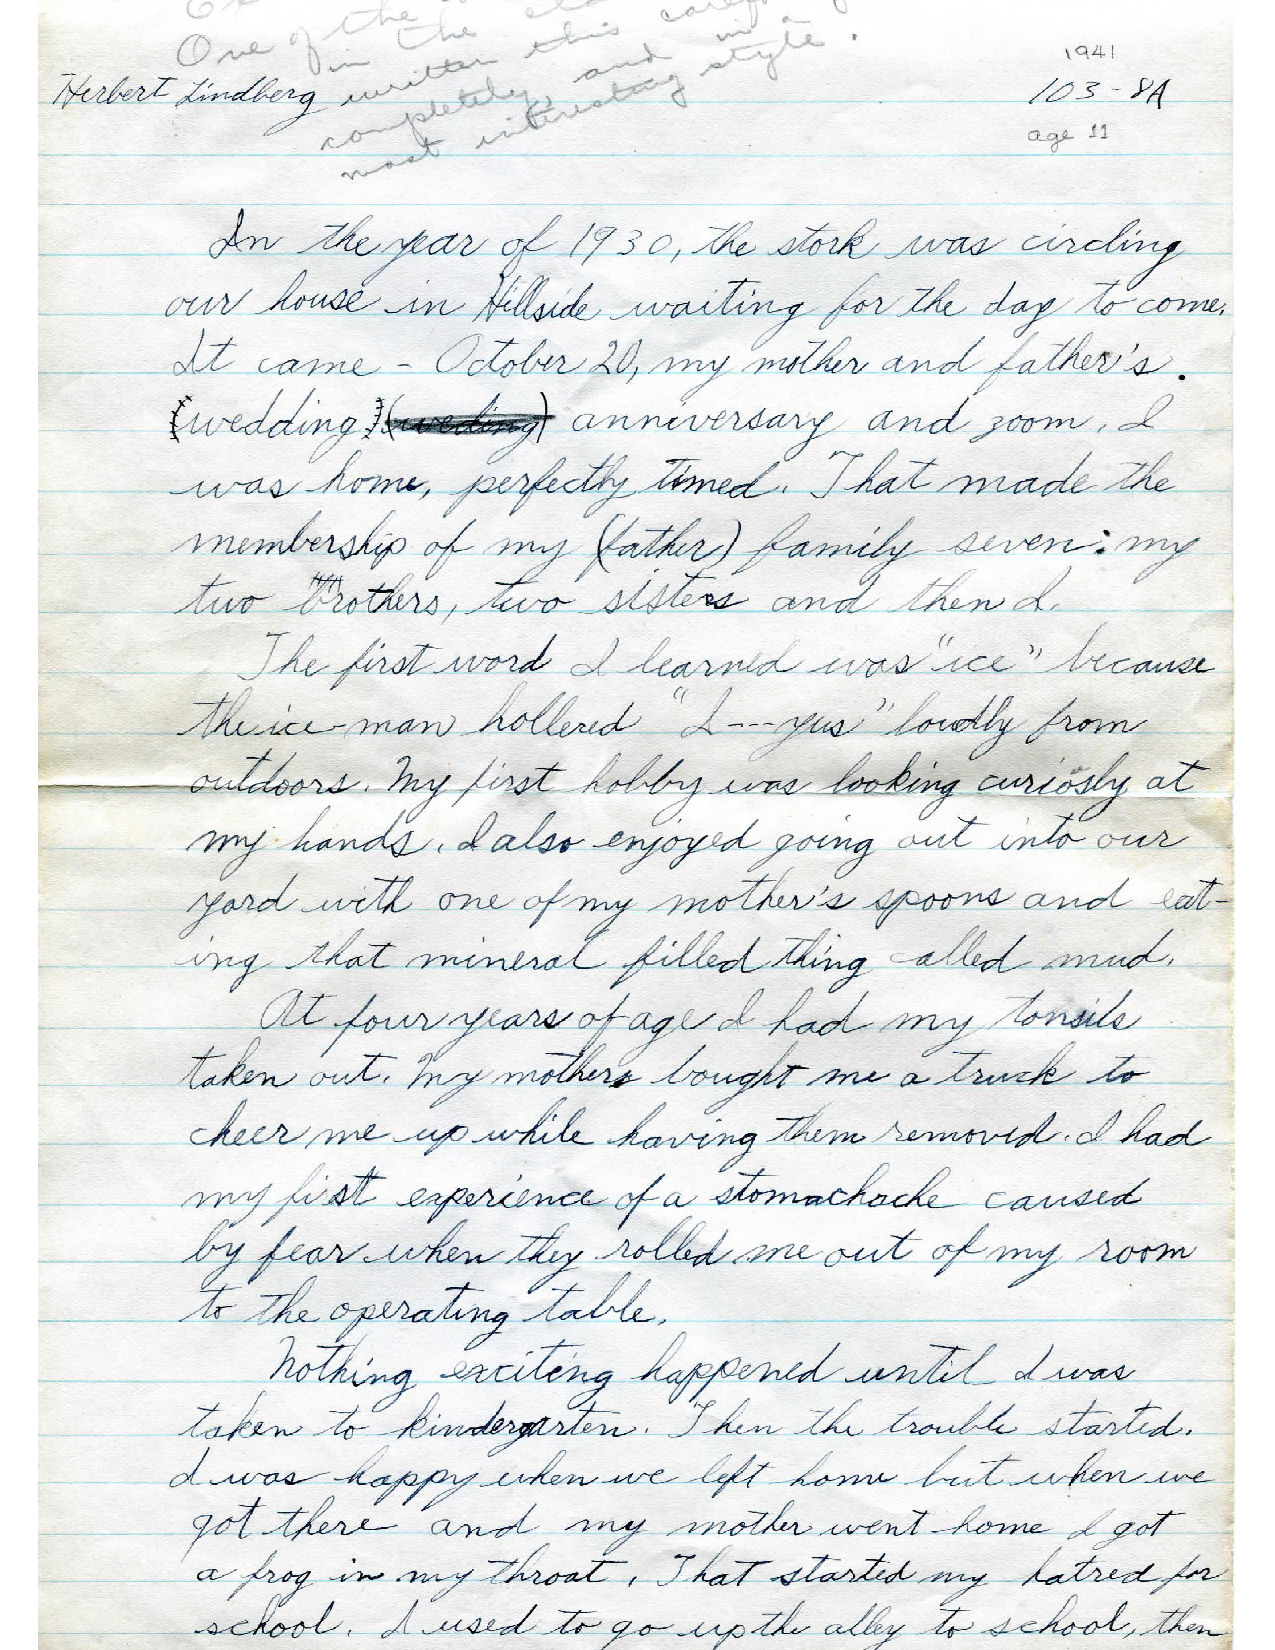 One of the
in the
written this
completely, and in a
most interesting style.
1941
Herbert Lindberg
103-8A
age 11
In the year of 1930, the stork was circling
our house in Hillside waiting for the day to come.
It came - October 20, my mother and father's.
(wedding) (weding) anniversary and zoom, I
was home, perfectly timed. That made the
membership of my (father) family seven: my
two brothers, two sisters and then I.
The first word I learned was "ice" because
the ice-man hollered "I---yus" loudly from
outdoors. My first hobby was looking curiosly at
my hands. I also enjoyed going out into our
yard with one of my mother's spoons and eat-
ing that mineral filled thing called mud.
At four years of age I had my tonsils
taken out. My mother bought me a truck to
cheer me up while having them removed. I had
my first experience of a stomachache caused
by fear when they rolled me out of my room
to the operating table.
Nothing exciting happened until I was
taken to kindergarten. Then the trouble started.
I was happy when we left home but when we
got there and my mother went home I got
a frog in my throat. That started my hatred for
school. I used to go up the alley to school, then